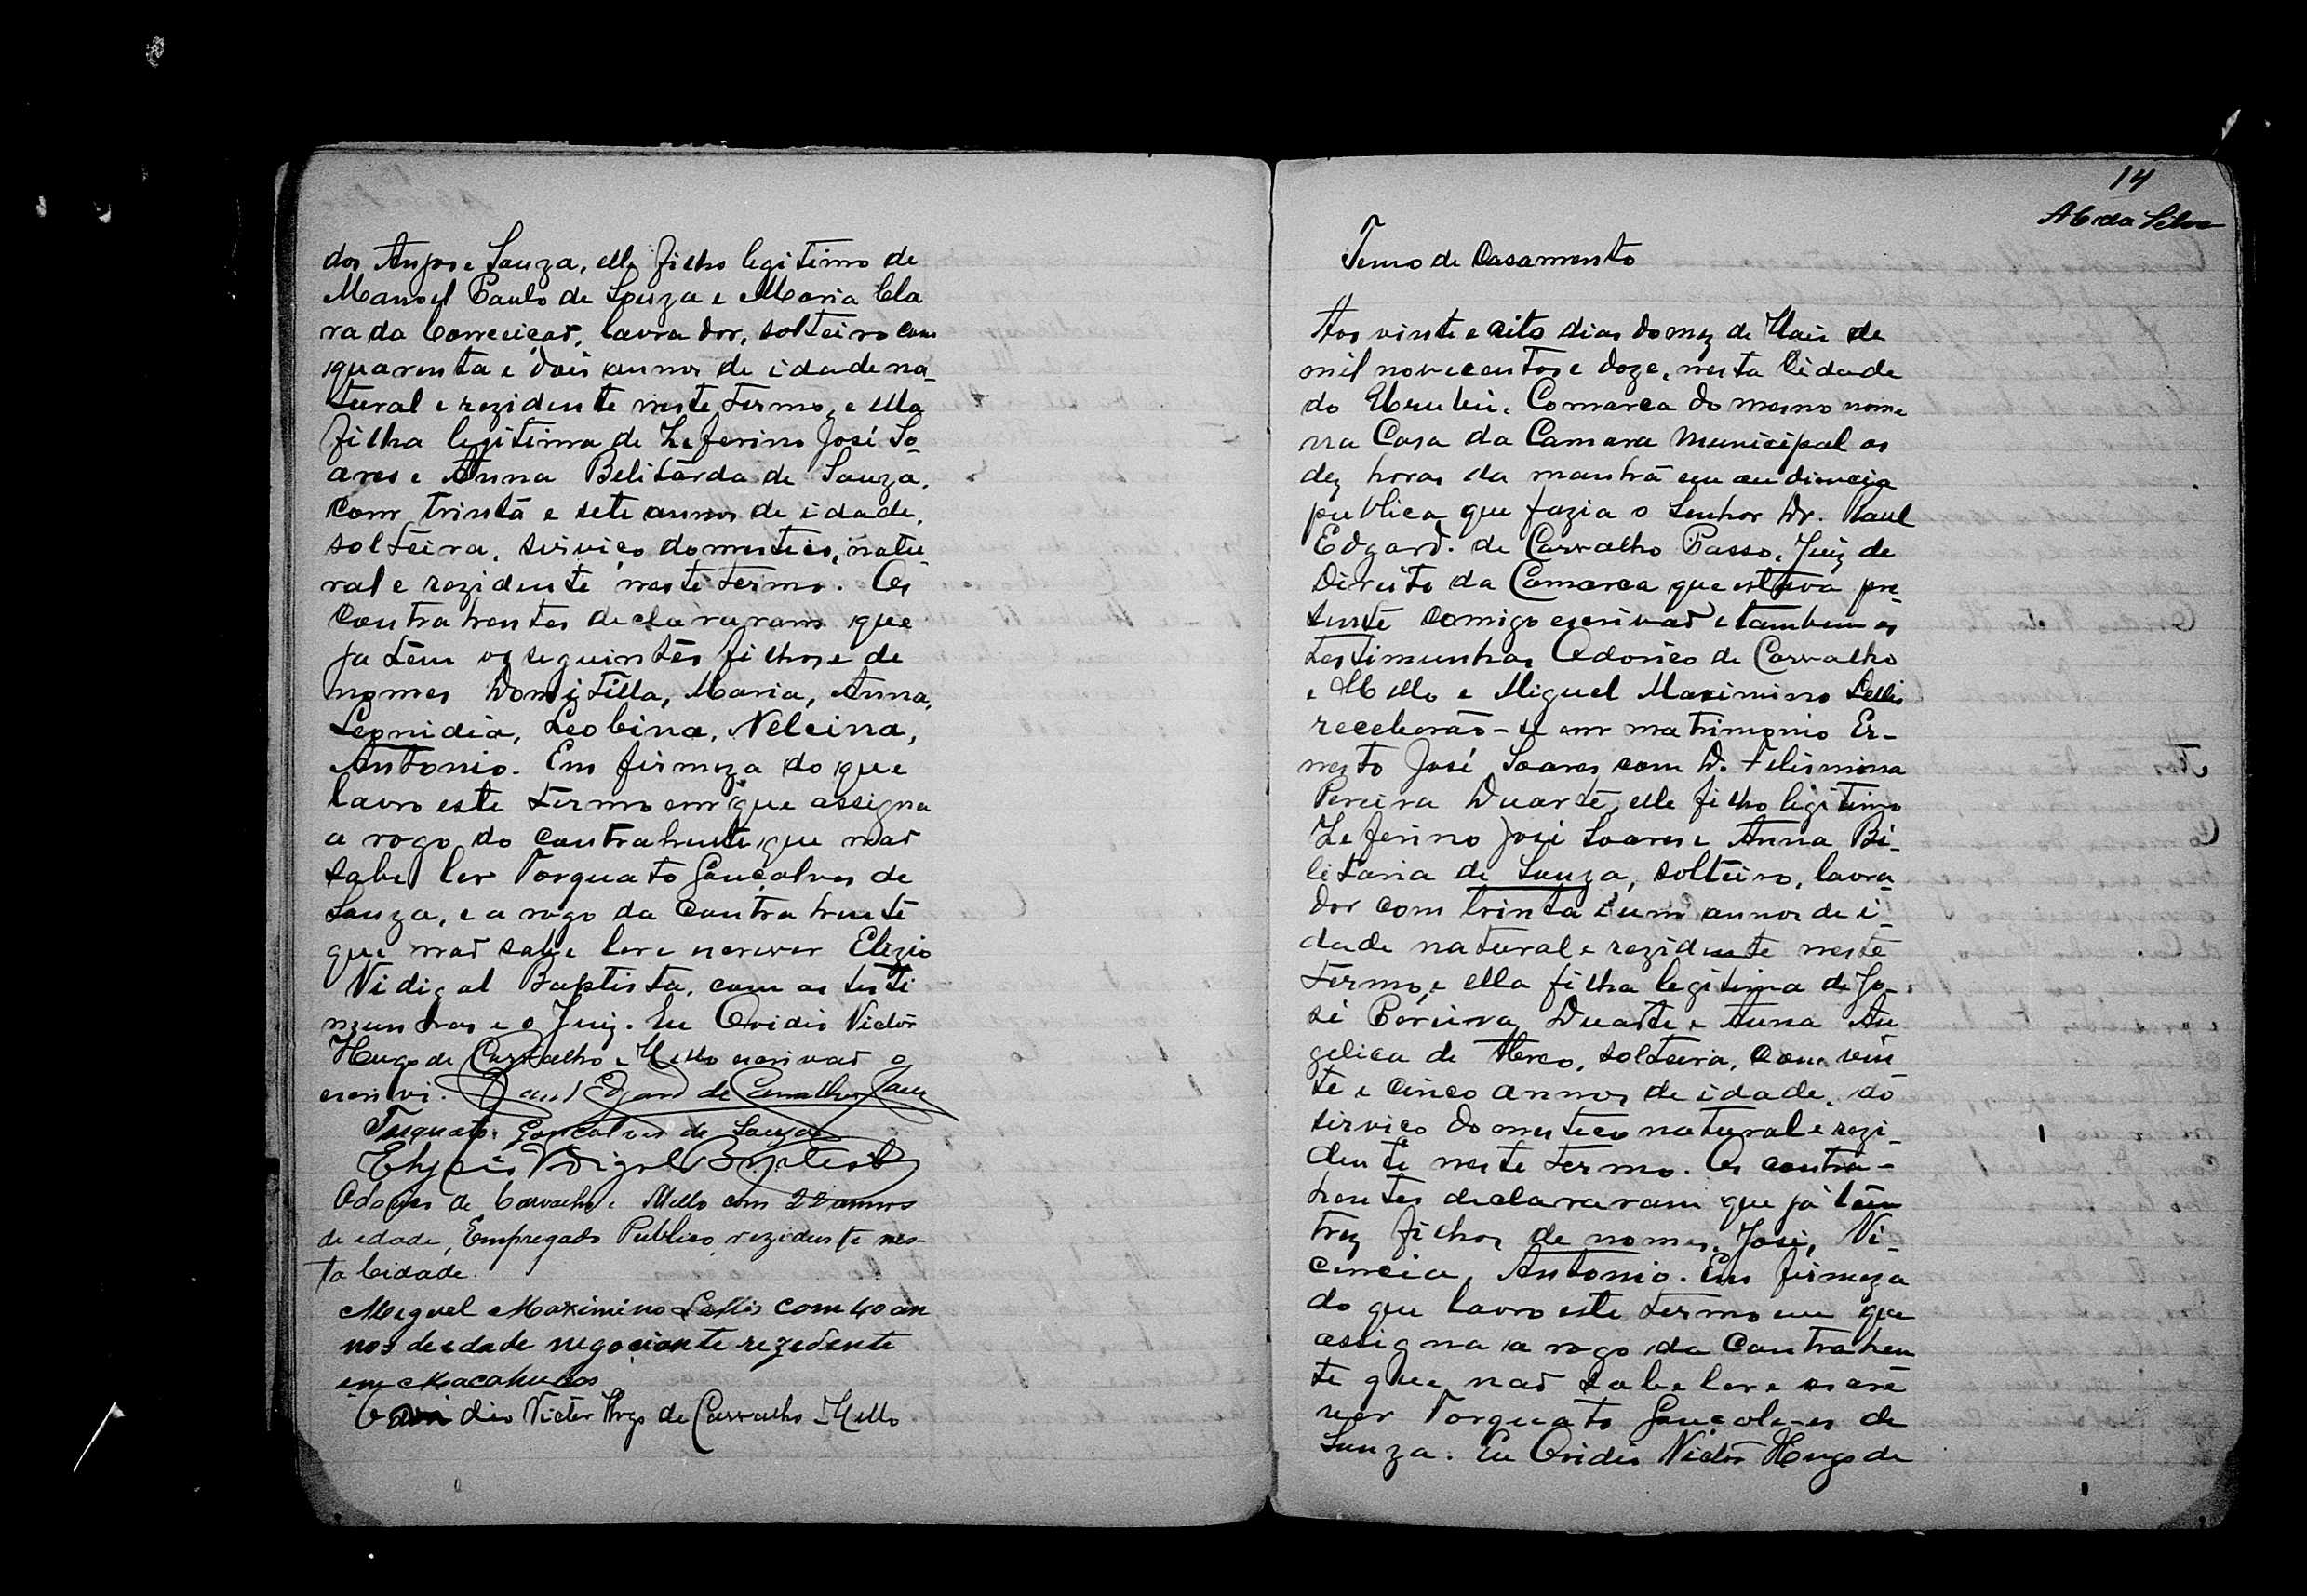 dos Anjos e Souza, elle filho legitimo de
Manoel Paulo de Souza e Maria Cla
ra da Conceição, lavrador, solteiro com
quarenta e dois annos de idade na-
tural e rezidente neste termo, e ella
filha legitima de Zeferino José So-
ares e Anna Belitarda de Souza,
com trinta e sete annos de idade,
solteira, serviço domestico, natu-
ral e rezidente neste termo. Os
contrahentes declararam que
ja têm os seguintes filhos e de
nomes Domitilla, Maria, Anna,
Leonidia, Leobina, Nelcina,
Antonio. Em firmeza do que
lavro este termo em que assigna
a rogo do contrahente que não
sabe ler Torquato Gonçalves de
Souza, e a rogo da contrahente
que não sabe ler e escrever Elizio
Vidigal Baptista, com as testi
munhas e o Juiz. Eu Ovidio Victor
Hugo de Carvalho e Mello escrivão o
escrivi. Raul Edgard de Carvalho
Torquato Gonçalves de Souza
Elysio Vidigal Baptista
Adonico de Carvalho e Mello com 22 annos
de edade, Empregado Publico rezidente nes-
ta Cidade.
Miguel Maximino Lellis com 40 an
nos de edade negociante rezedente
em Macahubas
Ovidio Victor Hugo de Carvalho e Mello
14
A C da Silva
Termo de Casamento
Aos vinte e oito dias do mez de Maio de
mil novecentos e doze, nesta Cidade
do Urubú, Comarca do mesmo nome
na Casa da Camara Municipal as
dez horas da manhã em audiencia
publica que fazia o Senhor Dr. Raul
Edgard. de Carvalho Passo, Juiz de
Direito da Comarca que estava pre-
sente comigo escrivão e tambem as
testimunhas Adonico de Carvalho
e Mello e Miguel Maximino Lellis
receberão-se em matrimonio Er-
nesto José Soares com D. Felismina
Pereira Duarte, elle filho legitimo
Zeferino José Soares e Anna Bi-
litaria de Souza, solteiro, lavra-
dor com trinta e um annos de i-
dade natural e rezidente neste
termo, e ella filha legitima de Jo-
sé Pereira Duarte e Anna An
gelica de, solteira, com vin
te e cinco annos de idade, do
serviço domestico natural e rezi-
dente neste termo. Os contra-
hentes declararam que já têm
trez filhos de nomes, José, Vi-
cencia, Antonio. Em firmeza
do que lavro este termo em que
assigna a rogo da contrahen
te que não sabe ler e escre
ver Torquato Gonçalves de
Souza. Eu Ovidio Victor Hugo de